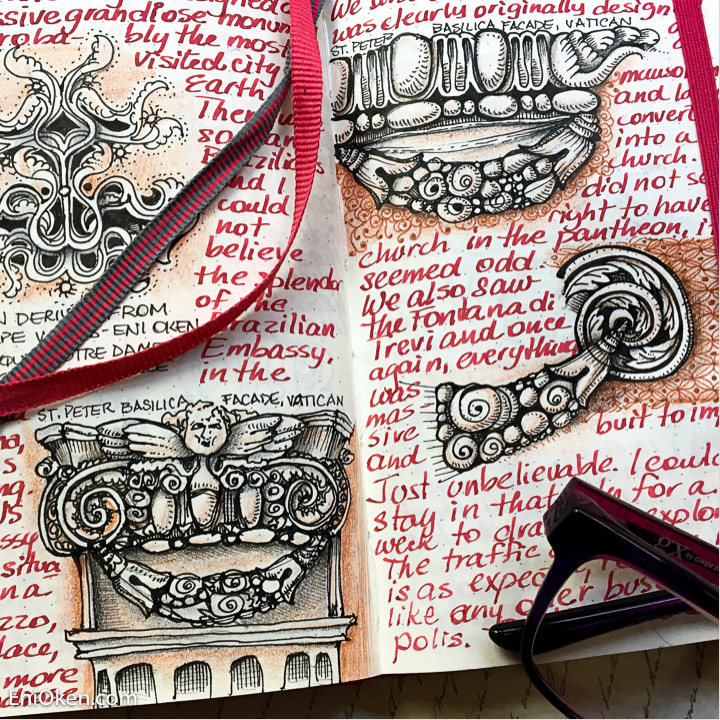 ssive grandiose monum
proba- bly the most
visited city
Earth
Then w
so
Brazilia
and I
could
not
believe
the splendor
of the
Brazilian
Embassy,
in the
FROM
ENI OKEN
NOTRE DAME
ST. PETER BASILICA FACADE, VATICAN
situa
in a
more
EniOken.com
We
was clearly originally design
ST. PETER BASILICA FACADE, VATICAN
and la
convert
into a
church.
did not se
right to have
church in the Pantheon, it
seemed odd.
We also saw
the Fontana di
Trevi and once
again, everything
was
mas-
sive
and
buit to im
Just unbelievable. I could
stay in that for a
week to explo
The traffic
is as expec
like any other bus
polis.
gx BY GWEN S